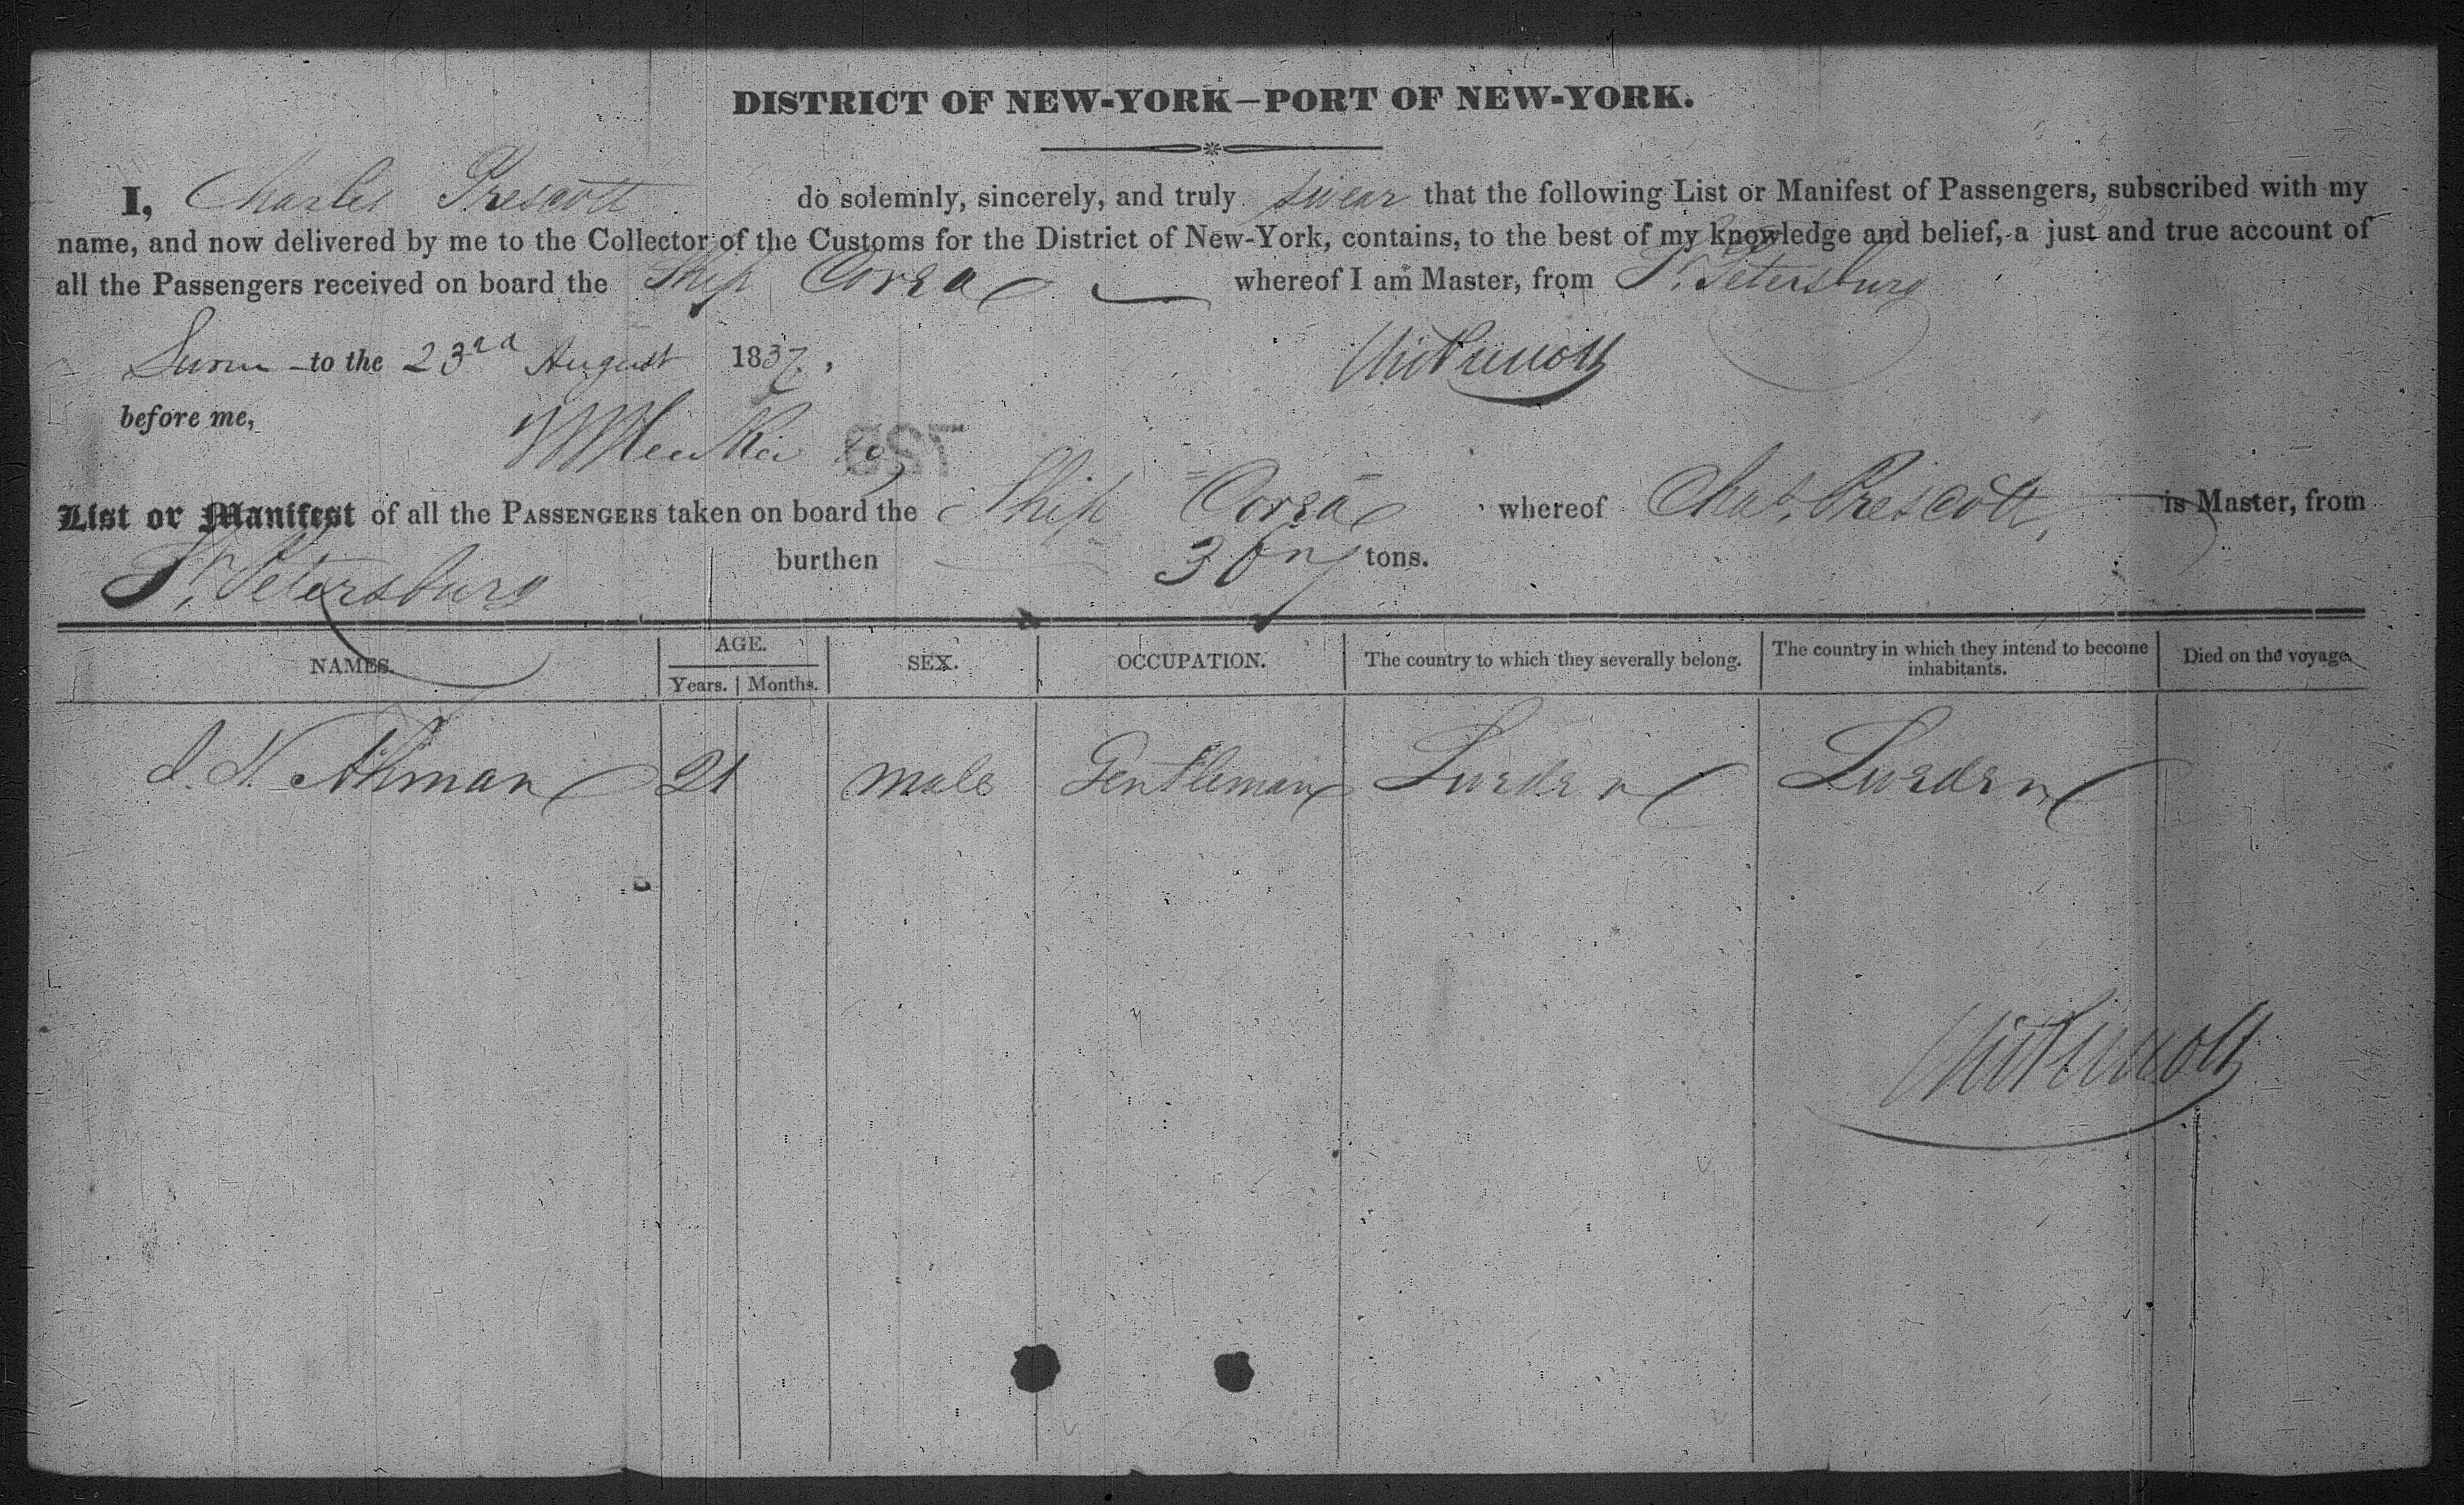 DISTRICT OF NEW-YORK—PORT OF NEW-YORK.
I, Charles Prescott do solemnly, sincerely, and truly swear that the following List or Manifest of Passengers, subscribed with my
name, and now delivered by me to the Collector of the Customs for the District of New-York, contains, to the best of my knowledge and belief, a just and true account of
all the Passengers received on board the Ship Corea whereof I am Master, from St. Petersburg
Sworn to the 23rd August 1837.
before me,
List or Manifest of all the PASSENGERS taken on board the Ship Corea whereof Chas. Prescott, is Master, from
St. Petersburg burthen tons.
NAMES. AGE. Years. Months. SEX. OCCUPATION. The country to which they severally belong. The country in which they intend to become inhabitants. Died on the voyage.
21 male Gentleman Sweden Sweden